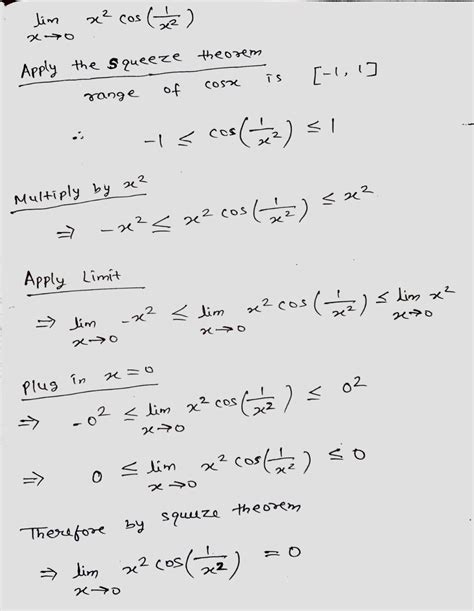 lim x→0 x² cos(1/x²)
Apply the Squeeze theorem
range of cosx is [-1, 1]
∴ -1 ≤ cos(1/x²) ≤ 1
Multiply by x²
⇒ -x² ≤ x² cos(1/x²) ≤ x²
Apply Limit
⇒ lim x→0 -x² ≤ lim x→0 x² cos(1/x²) ≤ lim x→0 x²
Plug in x=0
⇒ -0² ≤ lim x→0 x² cos(1/x²) ≤ 0²
⇒ 0 ≤ lim x→0 x² cos(1/x²) ≤ 0
Therefore by squuze theorem
⇒ lim x→0 x² cos(1/x²) = 0